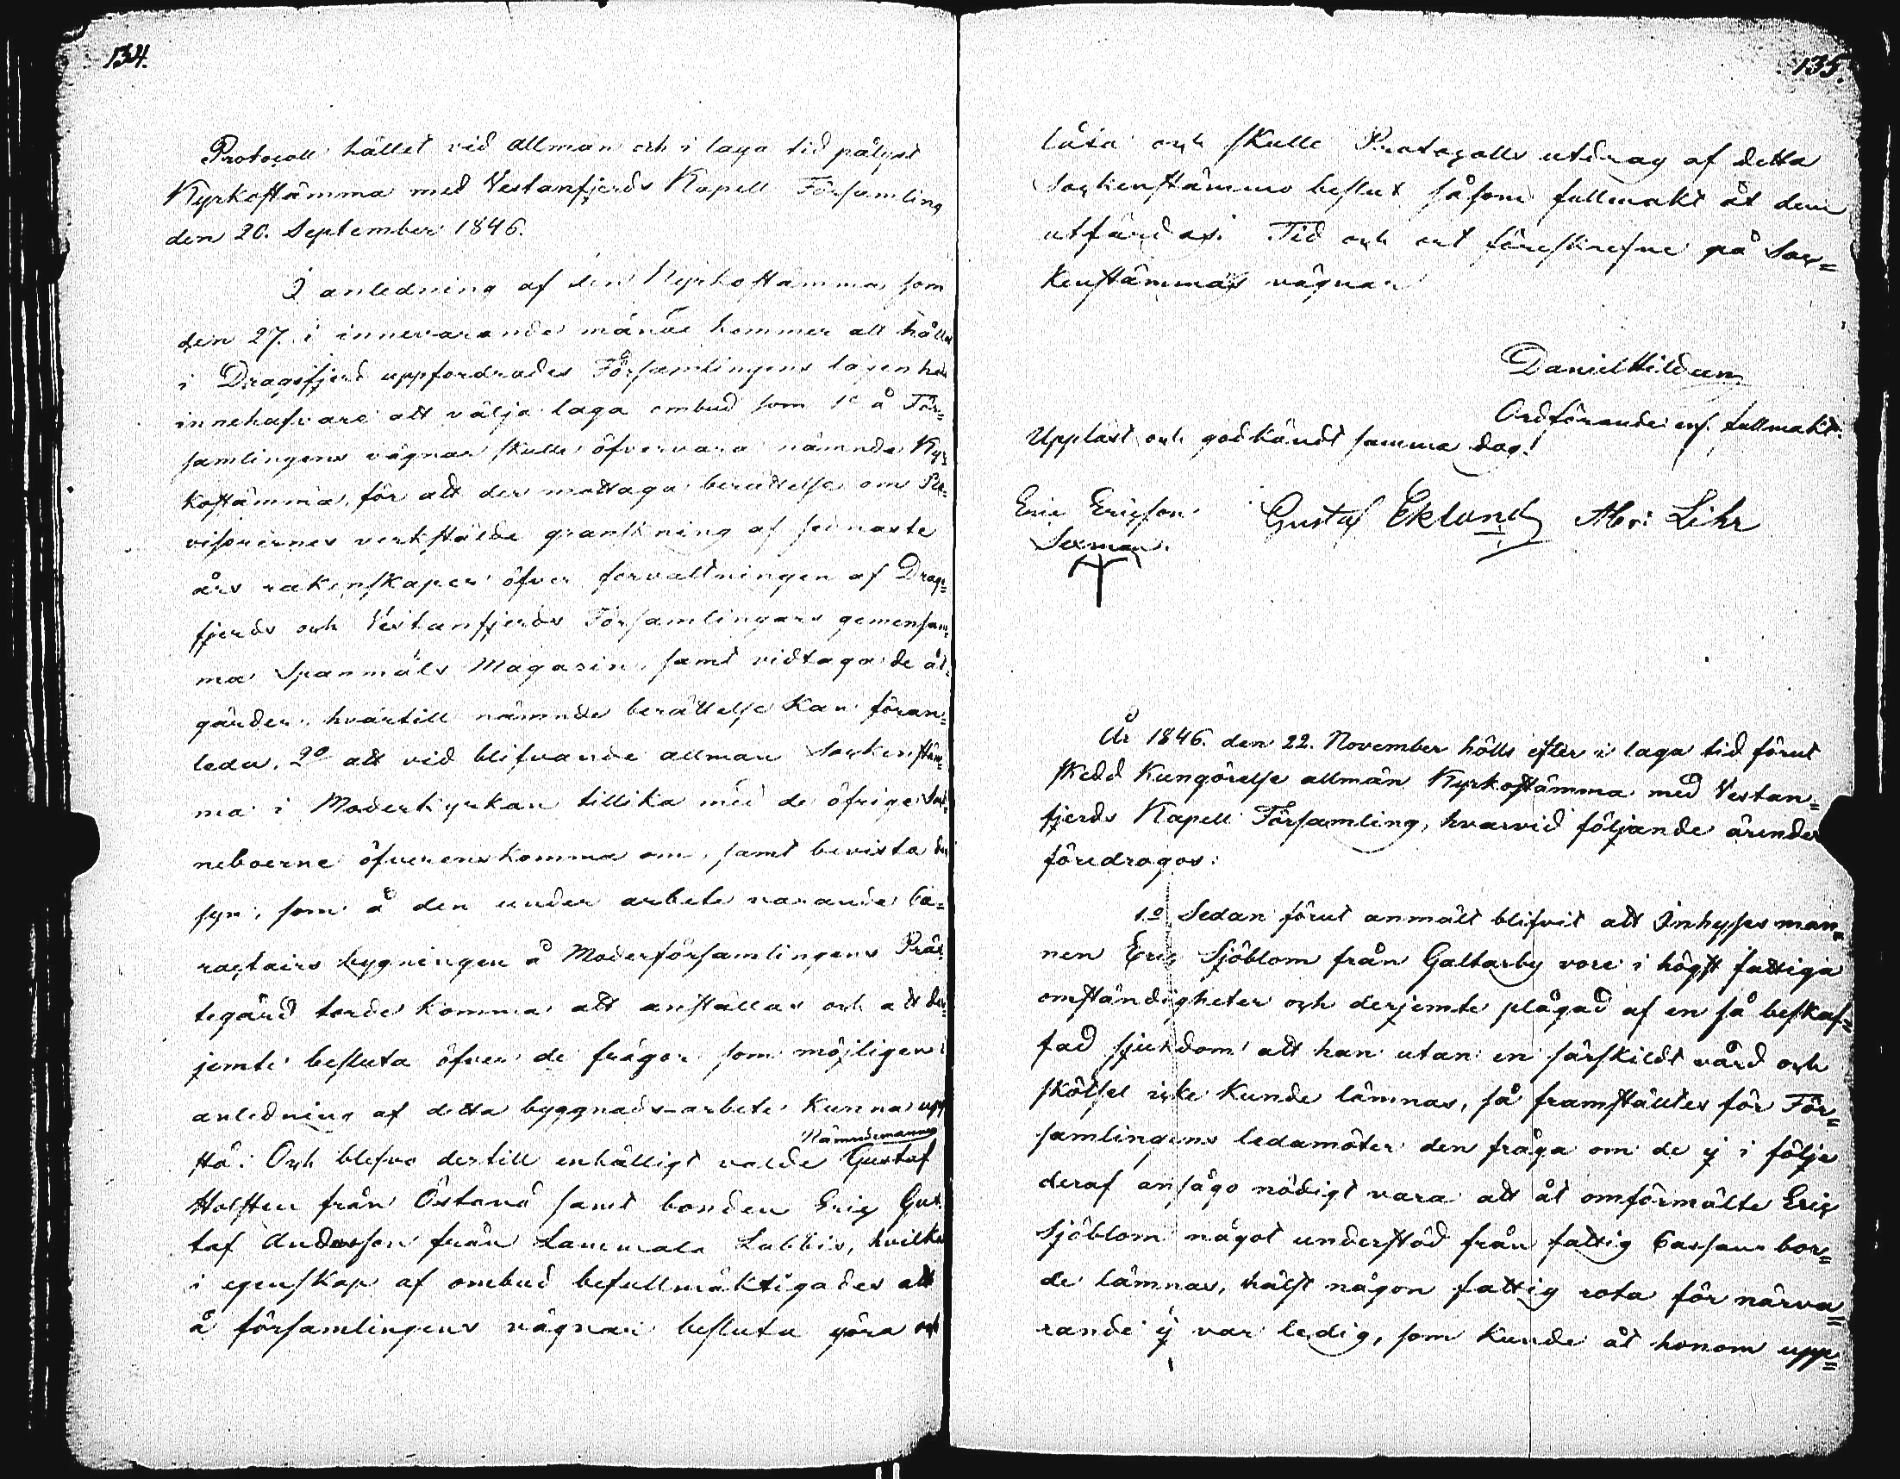 134.
Protocoll hållet vid allmän och i laga tid pålyst
Kyrkostämma med Vestanfjerds Kapell Församling
den 20. September 1846.
I anledning af den Kyrkostämma, som
den 27. i innevarande månad kommer att hållas
i Dragsfjerd uppfordrades Församlingens lägenhets
innehafvare att välja laga ombud som 1o å För=
samlingens vägnar skulle öfvervara nämnde Kyr=
kostämma, för att der mottaga berättelse om Re=
visorernes verkstälde granskning af senaste
års räkenskaper öfver förvaltningen af Drags=
fjerds och Vestanfjerds Församlingars gemensam=
ma Spanmåls Magasin, samt vidtaga de åt=
gärder, hvartill nämnde berättelse kan föran=
leda. 2o att vid blifvande allman Sockenstäm=
ma i Moderkyrkan tillika med de öfrige Soc=
neboerne öfverenskomma om, samt bevista den
syn, som å den under arbete varande Ca=
ractairs bygningen å Moderförsamlingens Präs=
tegård torde komma att anställas och att der=
jemte besluta öfver de frågor som möjligen i
anledning af detta byggnads-arbete kunna upp
Nämndemannen
stå. Och blefvo dertill enhälligt valde Gustaf
Holsten från Östanå samt bonden Eric Gus
taf Andersson från Lammala Labbis, hvilka
i egenskap af ombud befullmäktigades att
å församlingens vägnar besluta göra och
135.
låta och skulle Protocolls utdrag af detta
Sockenstämmo beslut såsom fullmakt åt dem
utfärdas. Tid och ort föreskrefne på Soc=
kenstämmas vägnar
Daniel Hildeen
Ordförande enl. fullmakt.
Uppläst och godkändt samma dag!
Eric Ericsson Gustaf Eklund Abr: Lihr
Sexman.
År 1846. den 22. November hölls efter i laga tid förut
skedd kungörelse allmän Kyrkostämma med Vestan=
fjerds Kapell Församling, hvarvid följande ärender
föredrogos:
1.o Sedan förut anmält blifvit att Inhyses man=
nen Eric Sjöblom från Galtarby vore i högst fattiga
omständigheter och derjemte plågad af en så beskaf=
fad sjukdom att han utan en särskildt vård och
skötsel icke kunde lämnas, så framställtes för För=
samlingens ledamöter den fråga om de ej i följe
deraf ansågo nödigt vara att åt omförmälte Eric
Sjöblom något understöd från fattig Cassan bor=
de lämnas, hälst någon fattig rota för närva=
rande ej var ledig, som kunde åt honom upp=